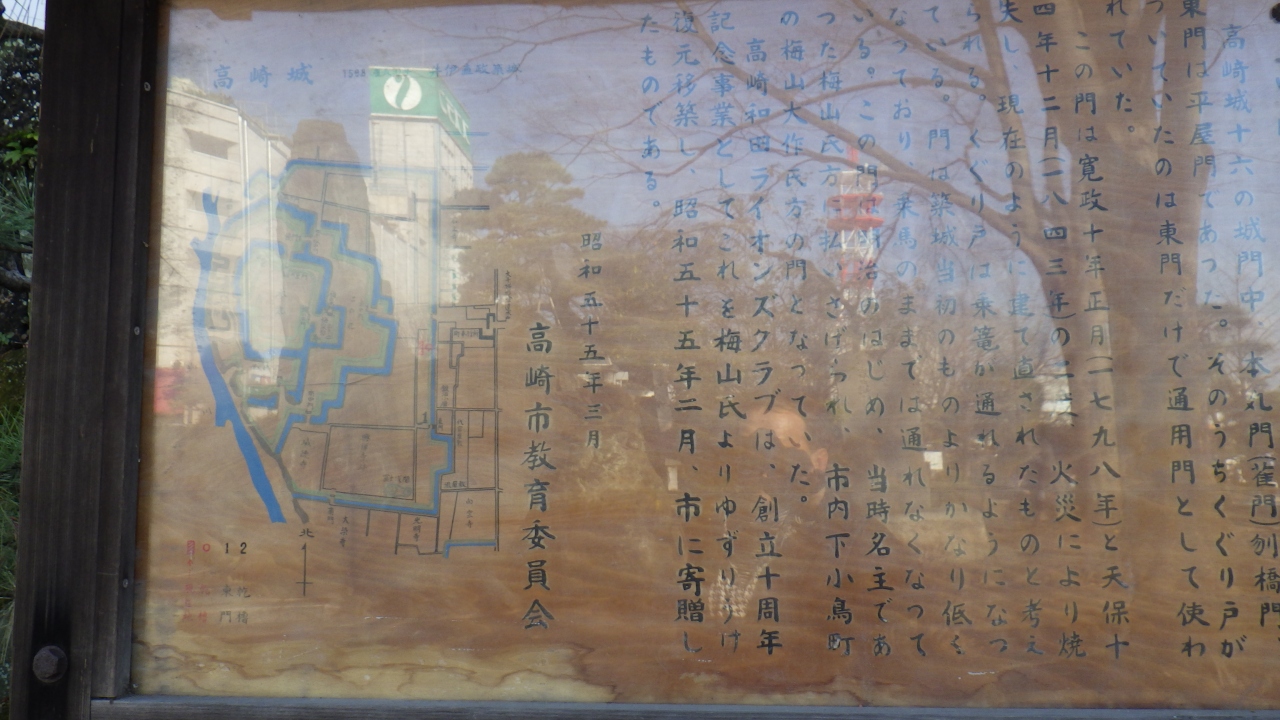 高崎城十六の城門中、本丸門(雀門)刎橋門
東門は平屋門であった。そのうちくぐり戸が
ついていたのは東門だけで通用門として使わ
れていた。
この門は寛政十年正月(一七九八年)と天保十
四年十二月(一八四三年)の二度、火災により焼
失し、現在のように建て直されたものと考え
られる。くぐり戸は乗篭が通れるようになっ
ている。門は築城当初のものよりかなり低く
なっており、乗馬のままでは通れなくなって
いる。この門は明治のはじめ、当時名主であ
った梅山氏方に払いさげられ、市内下小鳥町
の梅山大作氏方の門となっていた。
高崎和田ライオンズクラブは、創立十周年
記念事業としてこれを梅山氏よりゆずりうけ
復元移築し、昭和五十五年二月、市に寄贈し
たものである。
昭和五十五年三月
高崎市教育委員会
高崎城
北
12
東門